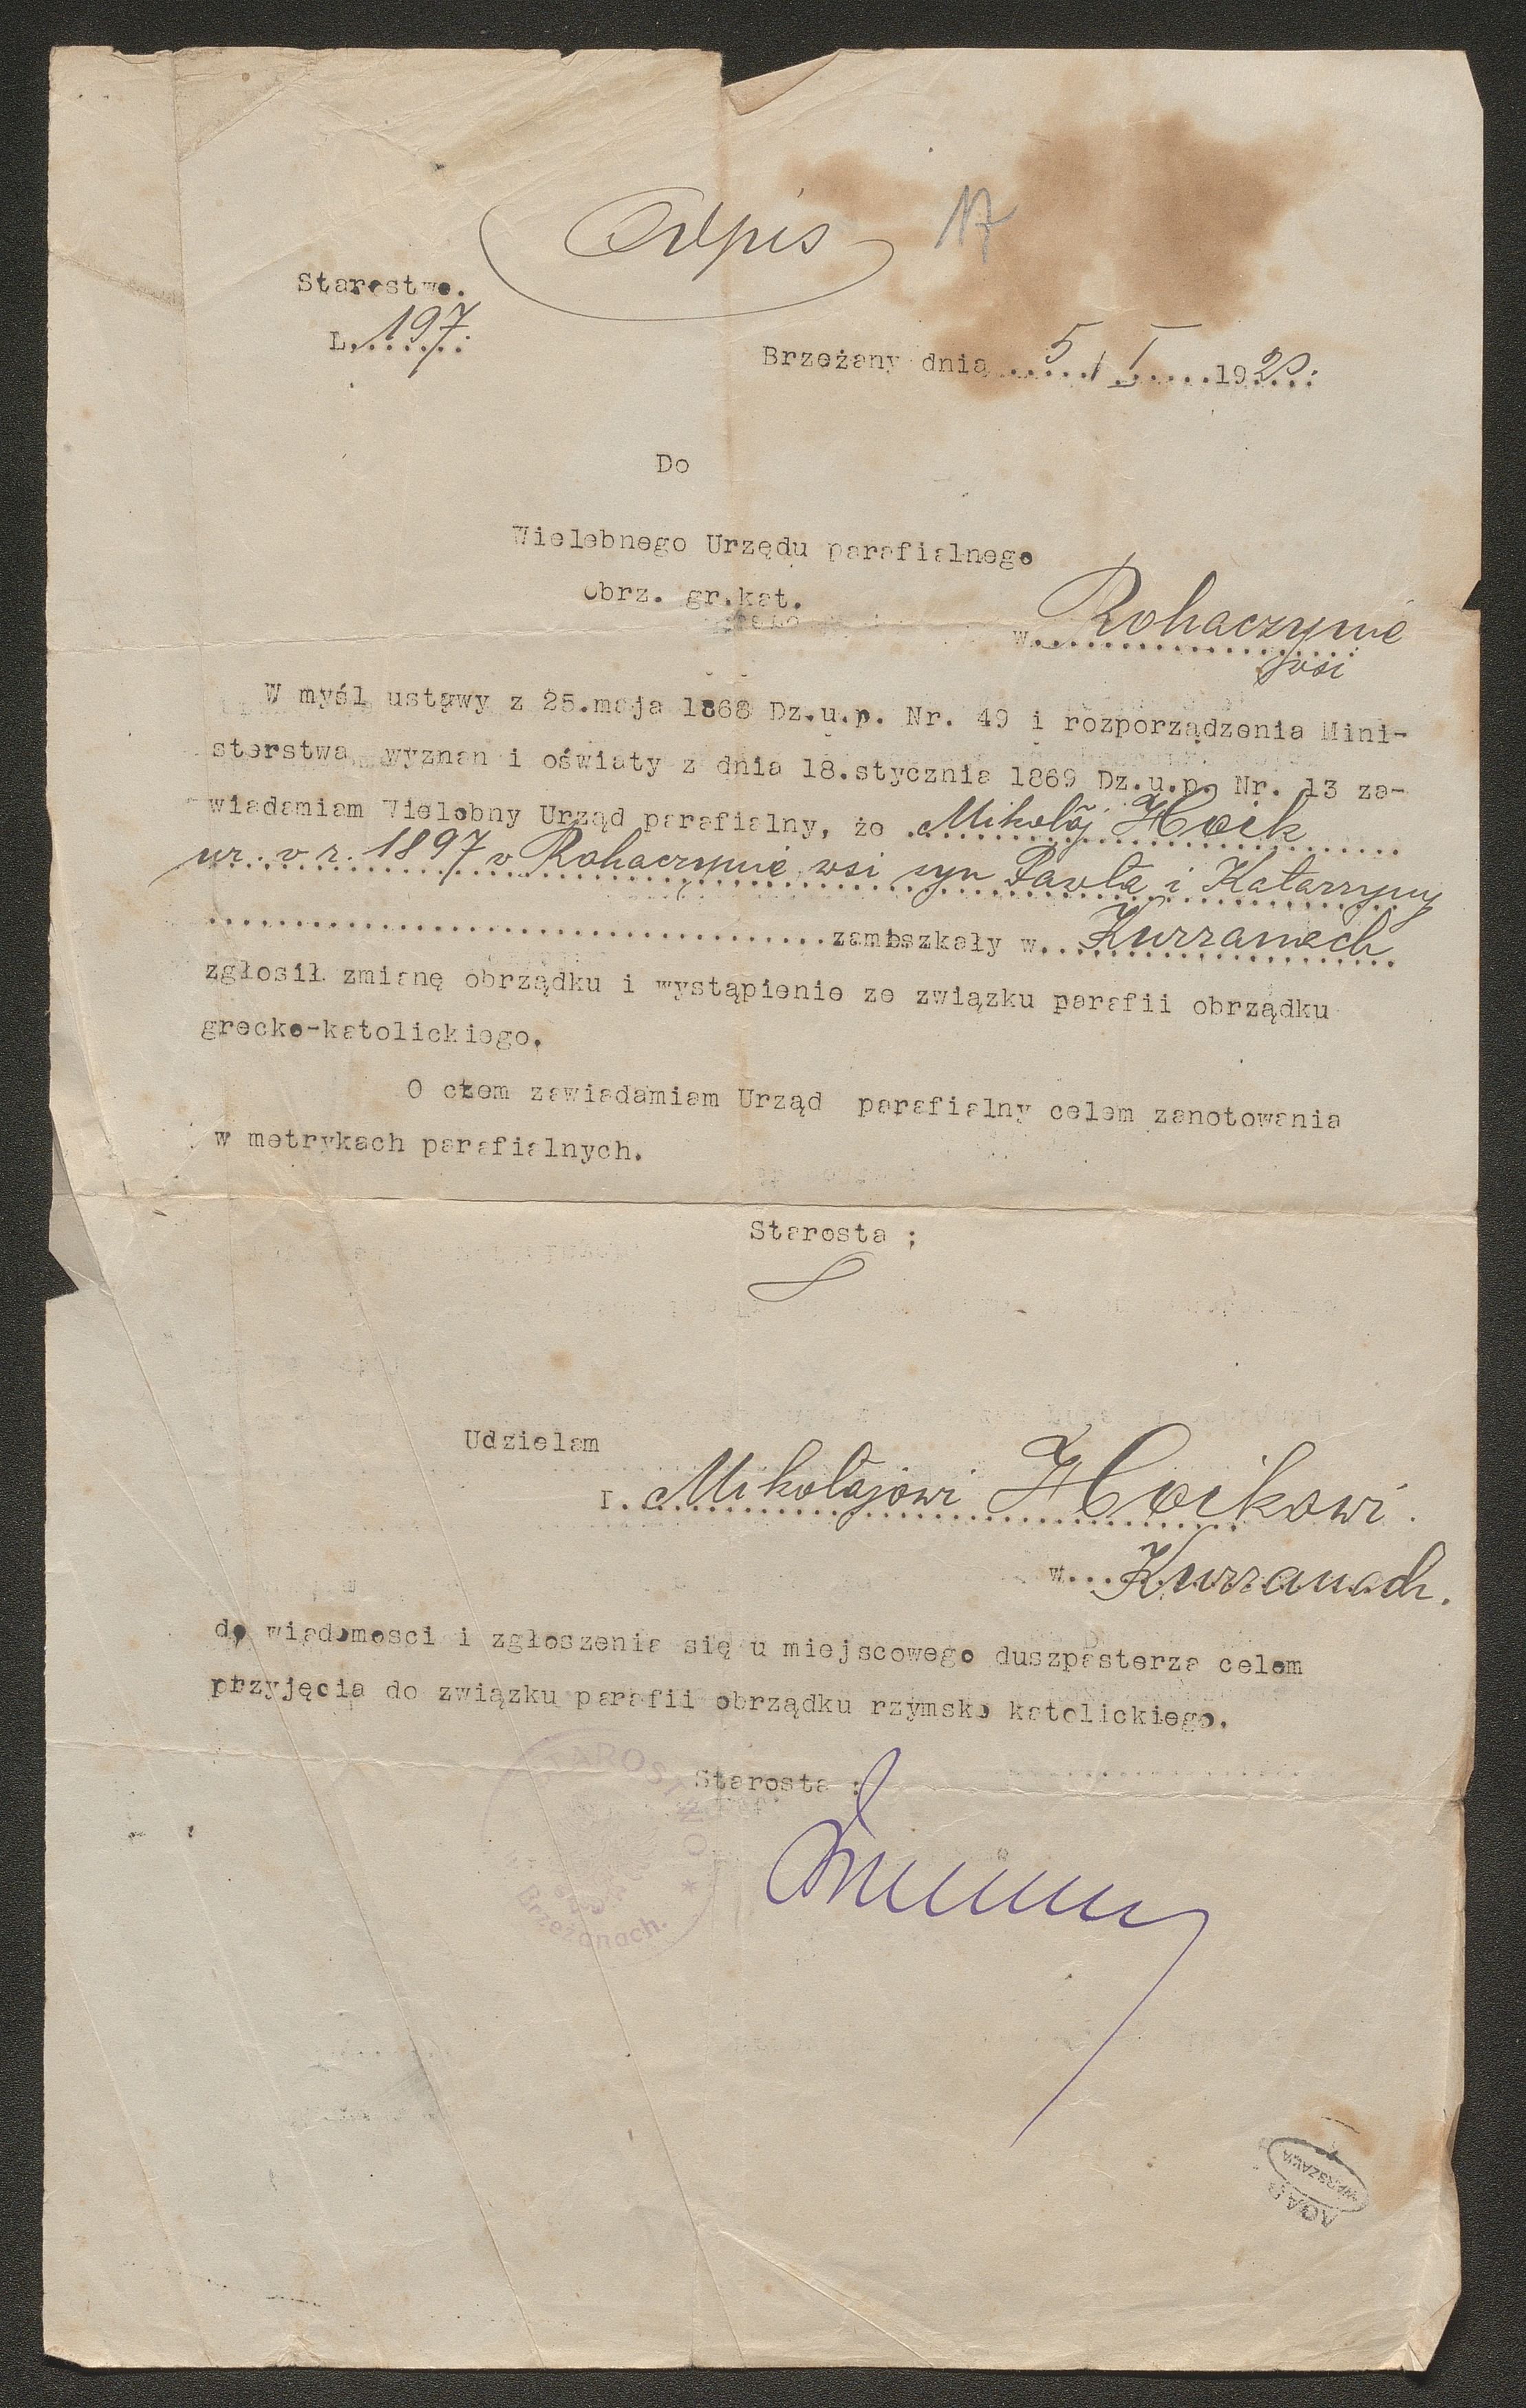 Odpis 17
Starostwo.
L. 197
Brzeżany dnia 5/I 1920
Do
Wielebnego Urzędu parafialnego
obrz. gr.kat.
w Rohaczynie
wsi
W myśl ustawy z 25.maja 1868 Dz.u.p. Nr. 49 i rozporządzenia Mini-
sterstwa wyznan i oświaty z dnia 18.stycznia 1869 Dz.u.p. Nr. 13 za-
wiadamiam Wielebny Urząd parafialny, że Mikołaj Hoik
ur. w r. 1897 w Rohaczynie wsi syn Pawła i Katarzyny
zamieszkały w Kurzanach
zgłosił zmianę obrządku i wystąpienie ze związku parafii obrządku
grecko-katolickiego.
O czem zawiadamiam Urząd parafialny celem zanotowania
w metrykach parafialnych.
Starosta ;
Udzielam
r. Mikołajowi Hoikowi.
w Kurzanach.
do wiadomosci i zgłoszenia się u miejscowego duszpasterza celem
przyjęcia do związku parafii obrządku rzymsko katolickiego.
Starosta :
STAROSTWO * w Brzeżanach.
AGAD
WARSZAWA